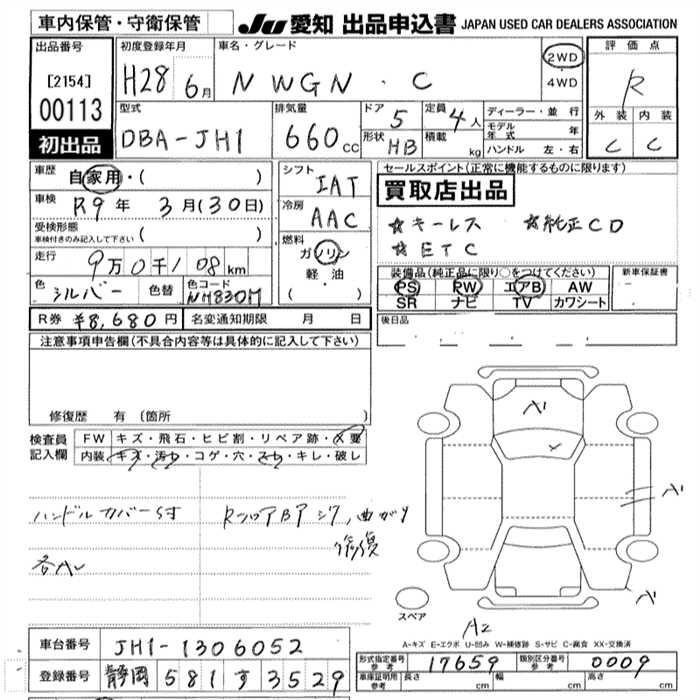 車内保管・守衛保管 JU 愛知 出品申込書 JAPAN USED CAR DEALERS ASSOCIATION
出品番号 初度登録年月 車名・グレード 評価点
[2154] H28 6月 N WGN ・ C 2WD ・ 4WD R
00113
型式 排気量 ドア 定員 ディーラー・並行 外装 内装
DBA-JH1 660cc 5 4人 モデル年式 年 C C
初出品 形状 HB 積載 kg ハンドル 左・右
車歴 自家用・( ) シフト IAT セールスポイント(正常に機能するものに限ります)
車検 R9年 3月(30日) 冷房 AAC 買取店出品
受検形態 ( ) ☆キーレス ☆純正CD
車検付きのみ記入して下さい 燃料 ☆ETC
走行 9万0千108km ガソリン 装備品(純正品に限り○をつけてください) 新車保証書
軽・油 PS PW エアB AW
色 シルバー 色替 色コード NH830M ( ・ ) SR ナビ TV カワシート
R券 ¥8,680円 名変通知期限 月 日 後日品
注意事項申告欄(不具合内容等は具体的に記入して下さい)
修復歴 有 (箇所 )
検査員記入欄 FW キズ・飛石・ヒビ割・リペア跡・X要
内装 キズ・汚れ・コゲ・穴・スレ・キレ・破レ
ハンドルカバー付
各A
修復
スペア
A2
A-キズ E-エクボ U-凹み W-補修跡 S-サビ C-腐食 XX-交換済
車台番号 JH1-1306052
形式指定番号 参考 17659 類別区分番号 参考 0009
登録番号 静岡 581 す 3529
車庫証明用 参考 長さ cm 幅 cm 高さ cm